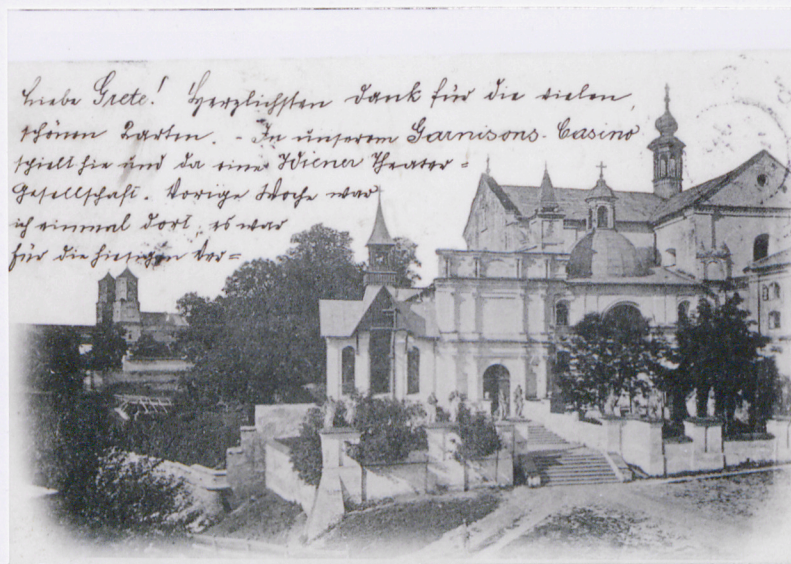 Liebe Grete! Herzlichsten Dank für die vielen,
schönen Karten. - In unserem Garnisons-Casino
spielt hie und da eine Wiener Theater=
Gesellschaft. Vorige Woche war
ich einmal dort, es war
für die hiesigen Ver=